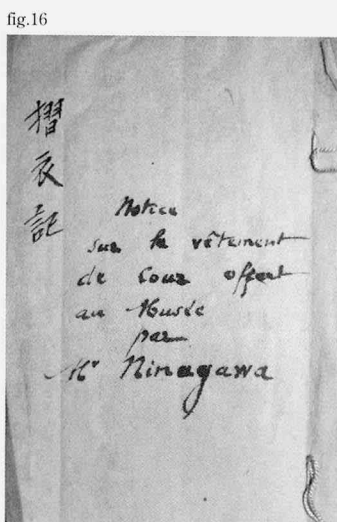 fig.16
摺衣記
Notice
sur le vêtement
de Cour offert
au Musée
par
Mr Ninagawa